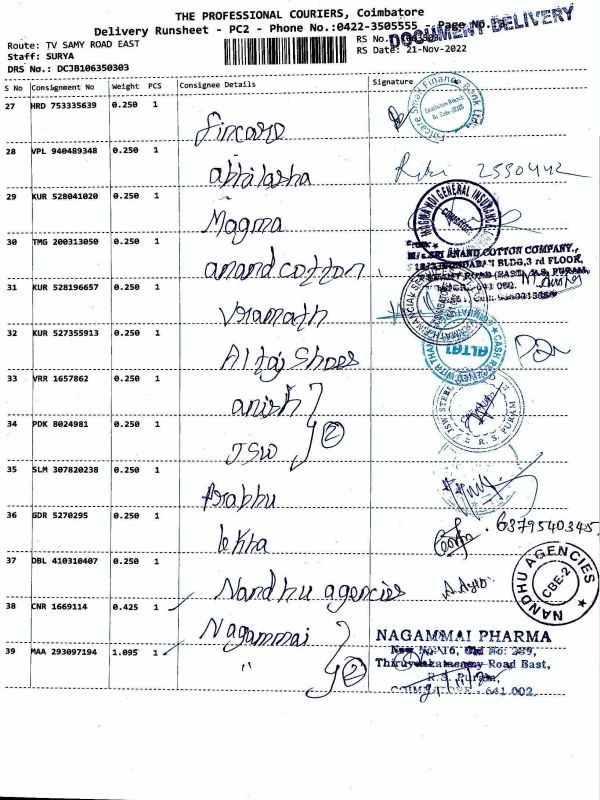 THE PROFESSIONAL COURIERS, Coimbatore
Delivery Runsheet - PC2 - Phone No.:0422-3505555 - Page No.
DOCUMENT DELIVERY
Route: TV SAMY ROAD EAST
RS No.
Staff: SURYA
RS Date: 21-Nov-2022
DRS No.: DCJB106350303
S No Consignment No Weight PCS Consignee Details Signature
27 HRD 753335639 0.250 1
Fincare
28 VPL 940489348 0.250 1
abhilasha
29 KUR 528041020 0.250 1
Magma
MAGMA HDI GENERAL INSURANCE
30 TMG 200313050 0.250 1
anand cotton
M/s. SRI ANAND COTTON COMPANY.,
BLDG, 3 rd FLOOR,
31 KUR 528196657 0.250 1
32 KUR 527355913 0.250 1
Altaj Shoes
ALTAJ
33 VRR 1657862 0.250 1
anish
34 PDK 8024981 0.250 1
JSW 2
R. S. PURAM
35 SLM 307820238 0.250 1
Prabhu
36 GDR 5270295 0.250 1
lekha
6379540345
37 DBL 410310407 0.250 1
Nandhu agencies
NANDHU AGENCIES
CBE-2
38 CNR 1669114 0.425 1
Nagammai
39 MAA 293097194 1.095 1
" 2
NAGAMMAI PHARMA
New No: 16, Old No: 239,
Road East,
R.S. Puram,
COIMBATORE - 641 002